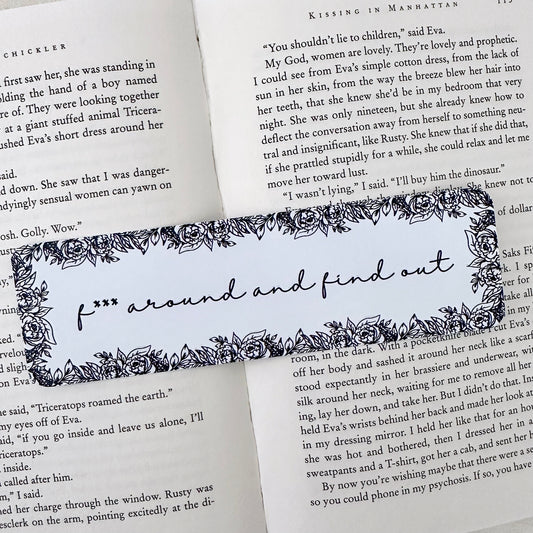 CHICKLER
first saw her, she was standing in
olding the hand of a boy named
re of. They were looking together
at a giant stuffed animal Tricera-
ushed Eva's short dress around her
said.
d down. She saw that I was danger-
ndyingly sensual women can yawn on
osh. Golly. Wow."
she said, "Triceratops roamed the earth."
my eyes off of Eva.
aid, "if you go inside and leave us alone, I'll
riceratops."
inside.
called after him.
," I said.
ned her charge through the window. Rusty was
desclerk on the arm, pointing excitedly at the di-
KISSING IN MANHATTAN
"You shouldn't lie to children," said Eva.
My God, women are lovely. They're lovely and prophetic.
I could see from Eva's simple cotton dress, from the lack of
sun in her skin, from the way the breeze blew her hair into
her teeth, that she knew she'd be in my bedroom that very
night. She was only nineteen, but she already knew how to
deflect the conversation away from herself to something neu-
tral and insignificant, like Rusty. She knew that if she did that,
if she prattled stupidly for a while, she could relax and let me
move her toward lust.
"I wasn't lying," I said. "I'll buy him the dinosaur."
She knew not to
of dollar
Saks Fi
I sp
ver for
take all
f*** around and find out
room, in the dark. With a pocketknife blade I cut Eva's
off her body and sashed it around her neck like a scarf
stood expectantly in her brassiere and underwear, wi
silk around her neck, waiting for me to remove all her
ing, lay her down, and take her. But I didn't do that. Ins
held Eva's wrists behind her back and made her look at
in my dressing mirror. I held her like that for an hou
she was hot and bothered, then I dressed her in a
sweatpants and a T-shirt, got her a cab, and sent her h
By now you're wishing maybe that there were a se
so you could phone in my psychosis. If so, you have